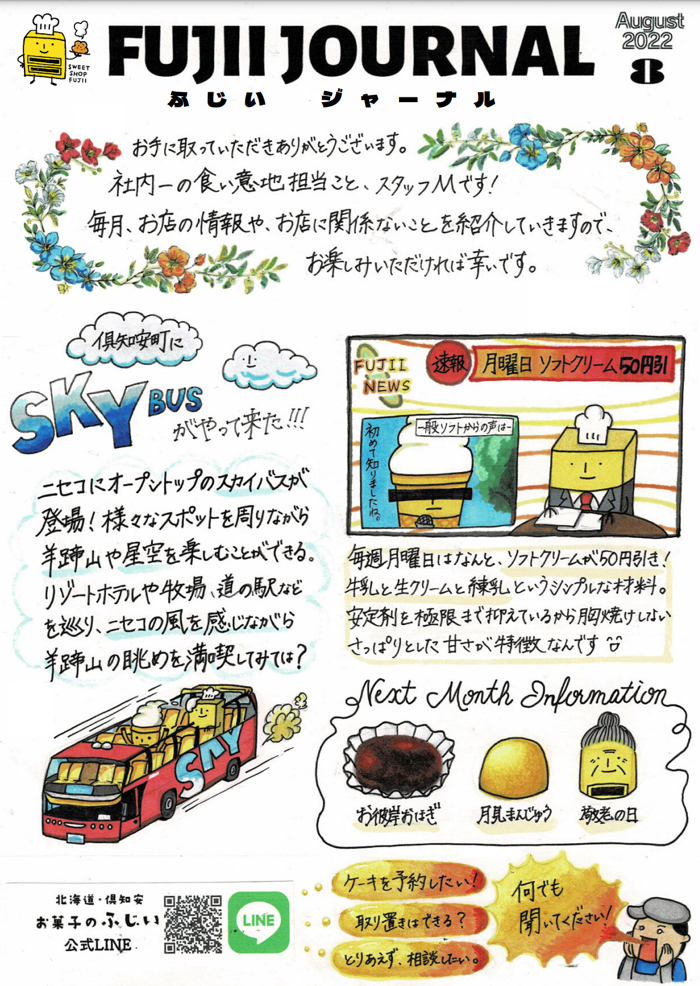 SWEET
SHOP
FUJII
FUJII JOURNAL
ふじい ジャーナル
August
2022
8
お手に取っていただきありがとうございます。
社内一の食い意地担当こと、スタッフMです!
毎月、お店の情報や、お店に関係ないことを紹介していきますので、
お楽しみいただければ幸いです。
倶知安町に
SKY BUS
がやって来た!!!
ニセコにオープントップのスカイバスが
登場!様々なスポットを周りながら
羊蹄山や星空を楽しむことができる。
リゾートホテルや牧場、道の駅など
を巡り、ニセコの風を感じながら
羊蹄山の眺めを満喫してみては?
SKY
FUJII
NEWS
速報
月曜日 ソフトクリーム50円引
一般ソフトからの声は
初めて知りましたね。
毎週月曜日はなんと、ソフトクリームが50円引き!
牛乳と生クリームと練乳というシンプルな材料。
安定剤を極限まで抑えているから胸焼けしない
さっぱりとした甘さが特徴なんです
Next Month Information
お彼岸おはぎ
月見まんじゅう
敬老の日
北海道・倶知安
お菓子のふじい
公式LINE
LINE
ケーキを予約したい!
取り置きはできる?
とりあえず、相談したい。
何でも
聞いてください!